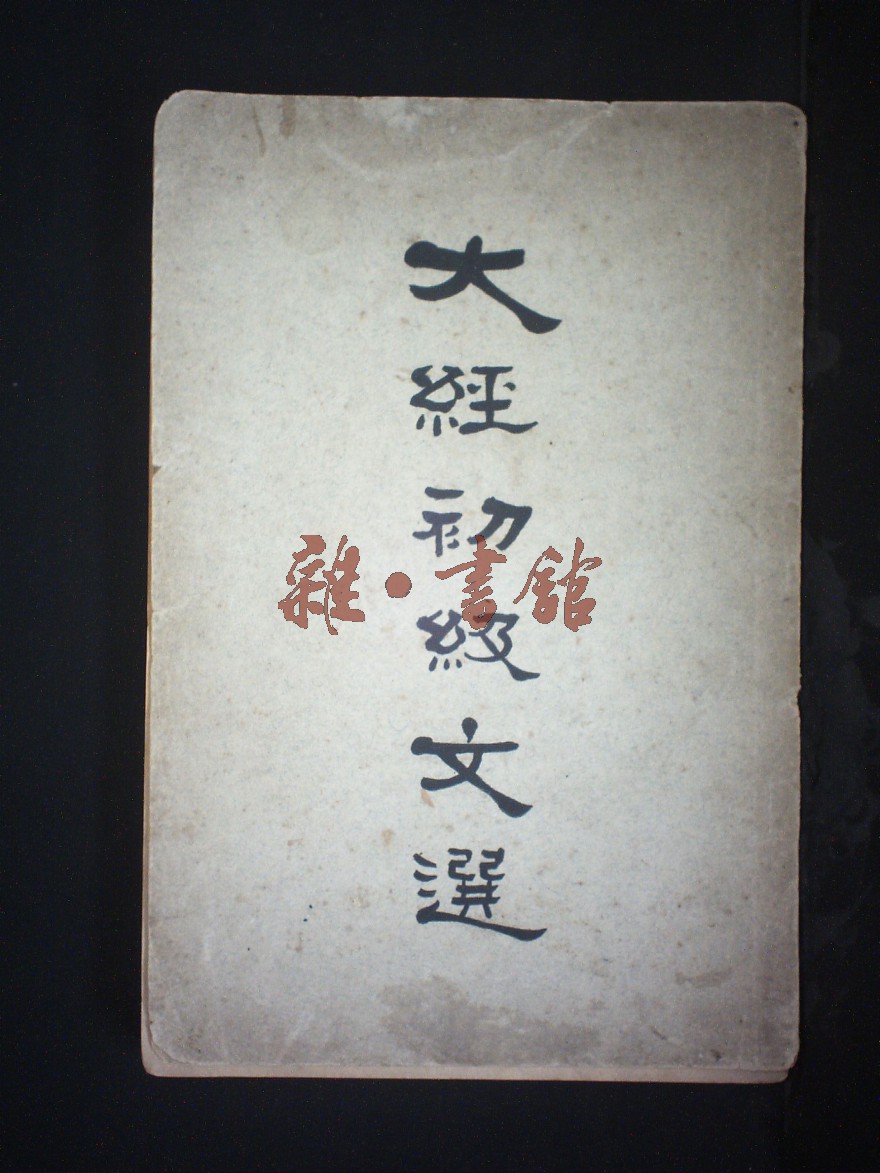 大經初級文選
雜·書館